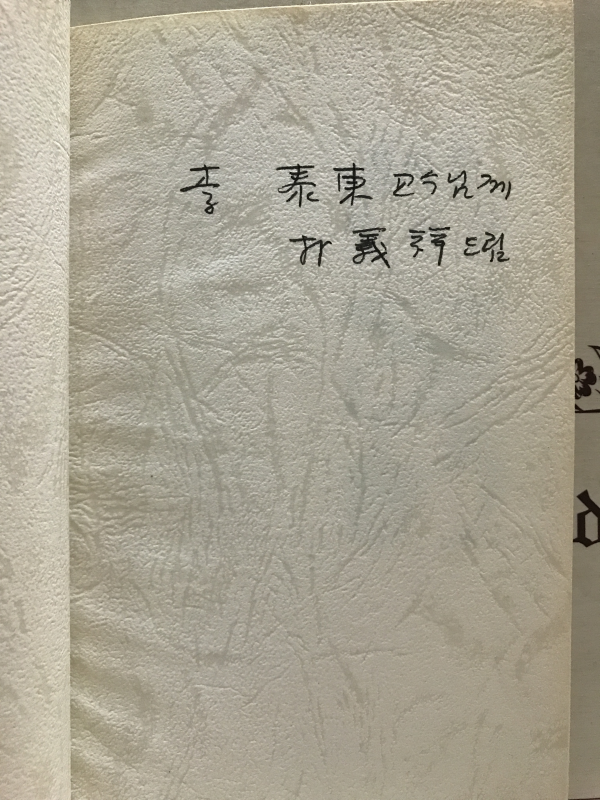 李 泰東 교수님께
朴 義祥 드림
d